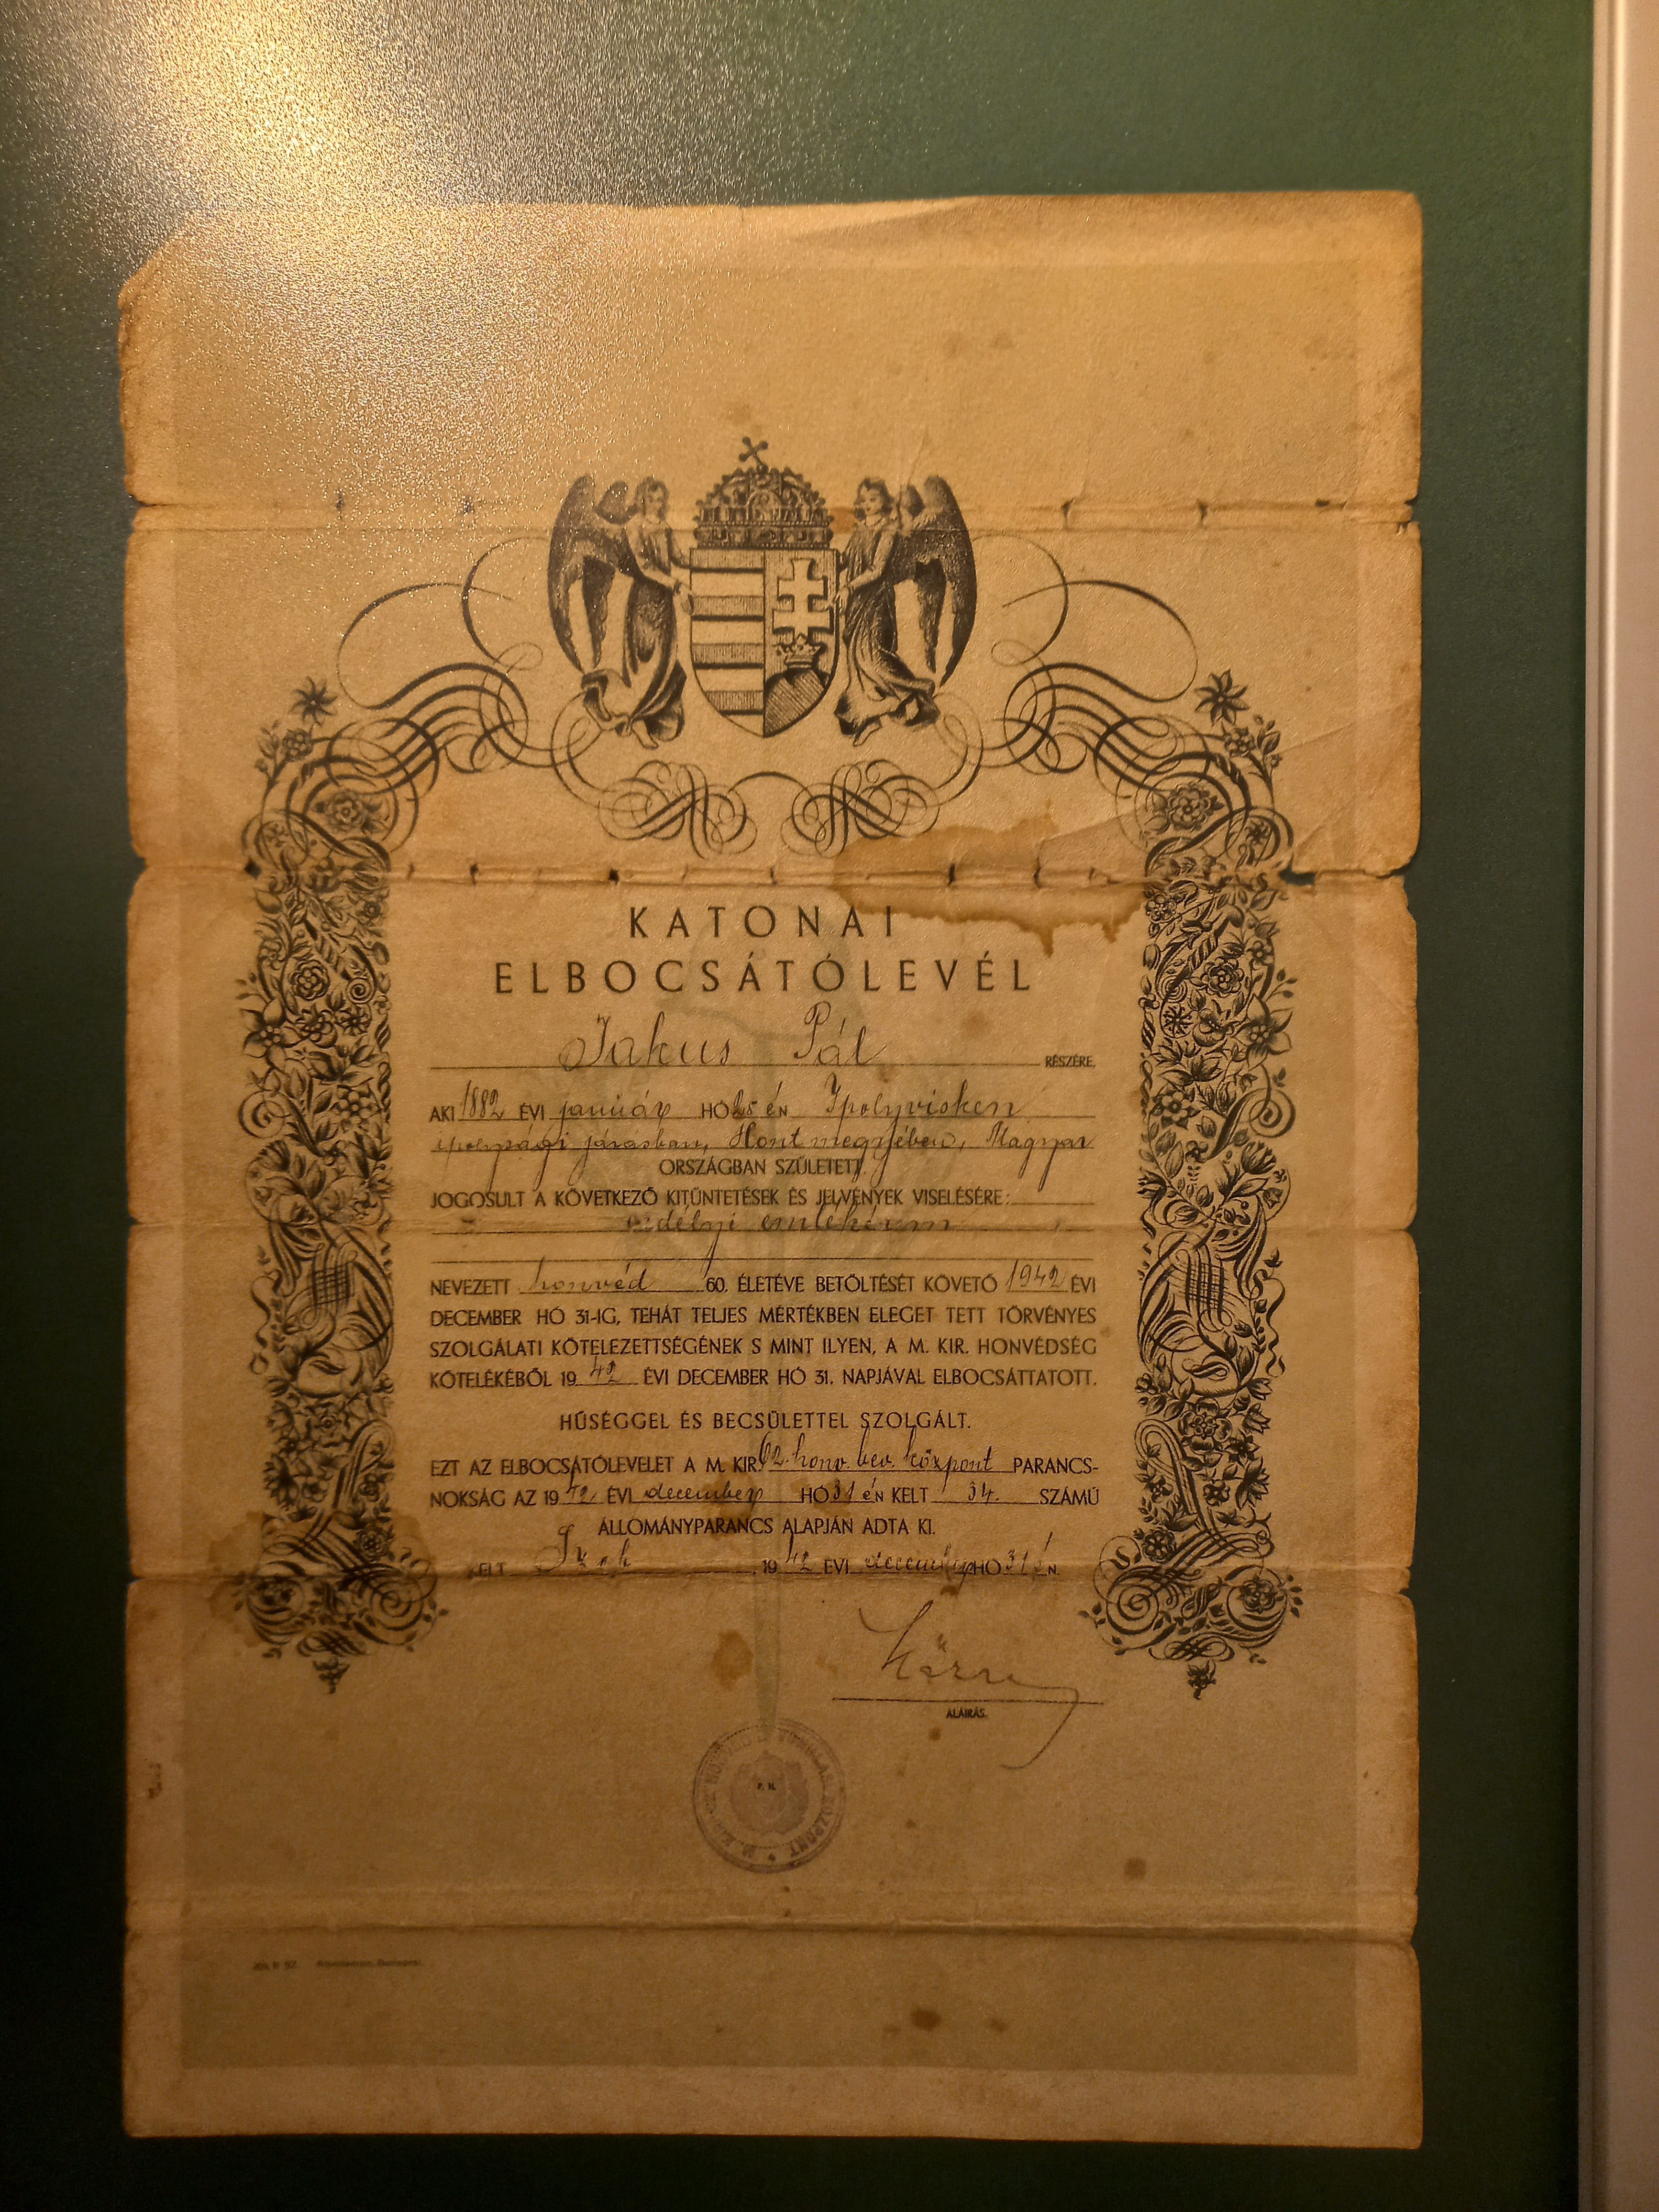 KATONAI
ELBOCSÁTÓLEVÉL
Jakus Pál RÉSZÉRE,
AKI 1882 ÉVI január HÓ 25 ÉN Ipolyvisken
ipolysági járásban, Hont megyében, Magyar
ORSZÁGBAN SZÜLETETT.
JOGOSULT A KÖVETKEZŐ KITÜNTETÉSEK ÉS JELVÉNYEK VISELÉSÉRE:
erdélyi emlékérem
NEVEZETT honvéd 60. ÉLETÉVE BETÖLTÉSÉT KÖVETŐ 1942 ÉVI
DECEMBER HÓ 31-IG, TEHÁT TELJES MÉRTÉKBEN ELEGET TETT TÖRVÉNYES
SZOLGÁLATI KÖTELEZETTSÉGÉNEK S MINT ILYEN, A M. KIR. HONVÉDSÉG
KÖTELÉKÉBŐL 19 42 ÉVI DECEMBER HÓ 31. NAPJÁVAL ELBOCSÁTTATOTT.
HŰSÉGGEL ÉS BECSÜLETTEL SZOLGÁLT.
EZT AZ ELBOCSÁTÓLEVELET A M. KIR. honv. kev. központ PARANCS-
NOKSÁG AZ 19 42 ÉVI december HÓ 31 ÉN KELT 34. SZÁMÚ
ÁLLOMÁNYPARANCS ALAPJÁN ADTA KI.
KELT 19 42 ÉVI december HÓ 31 ÉN.
ALÁIRÁS.
P. H.